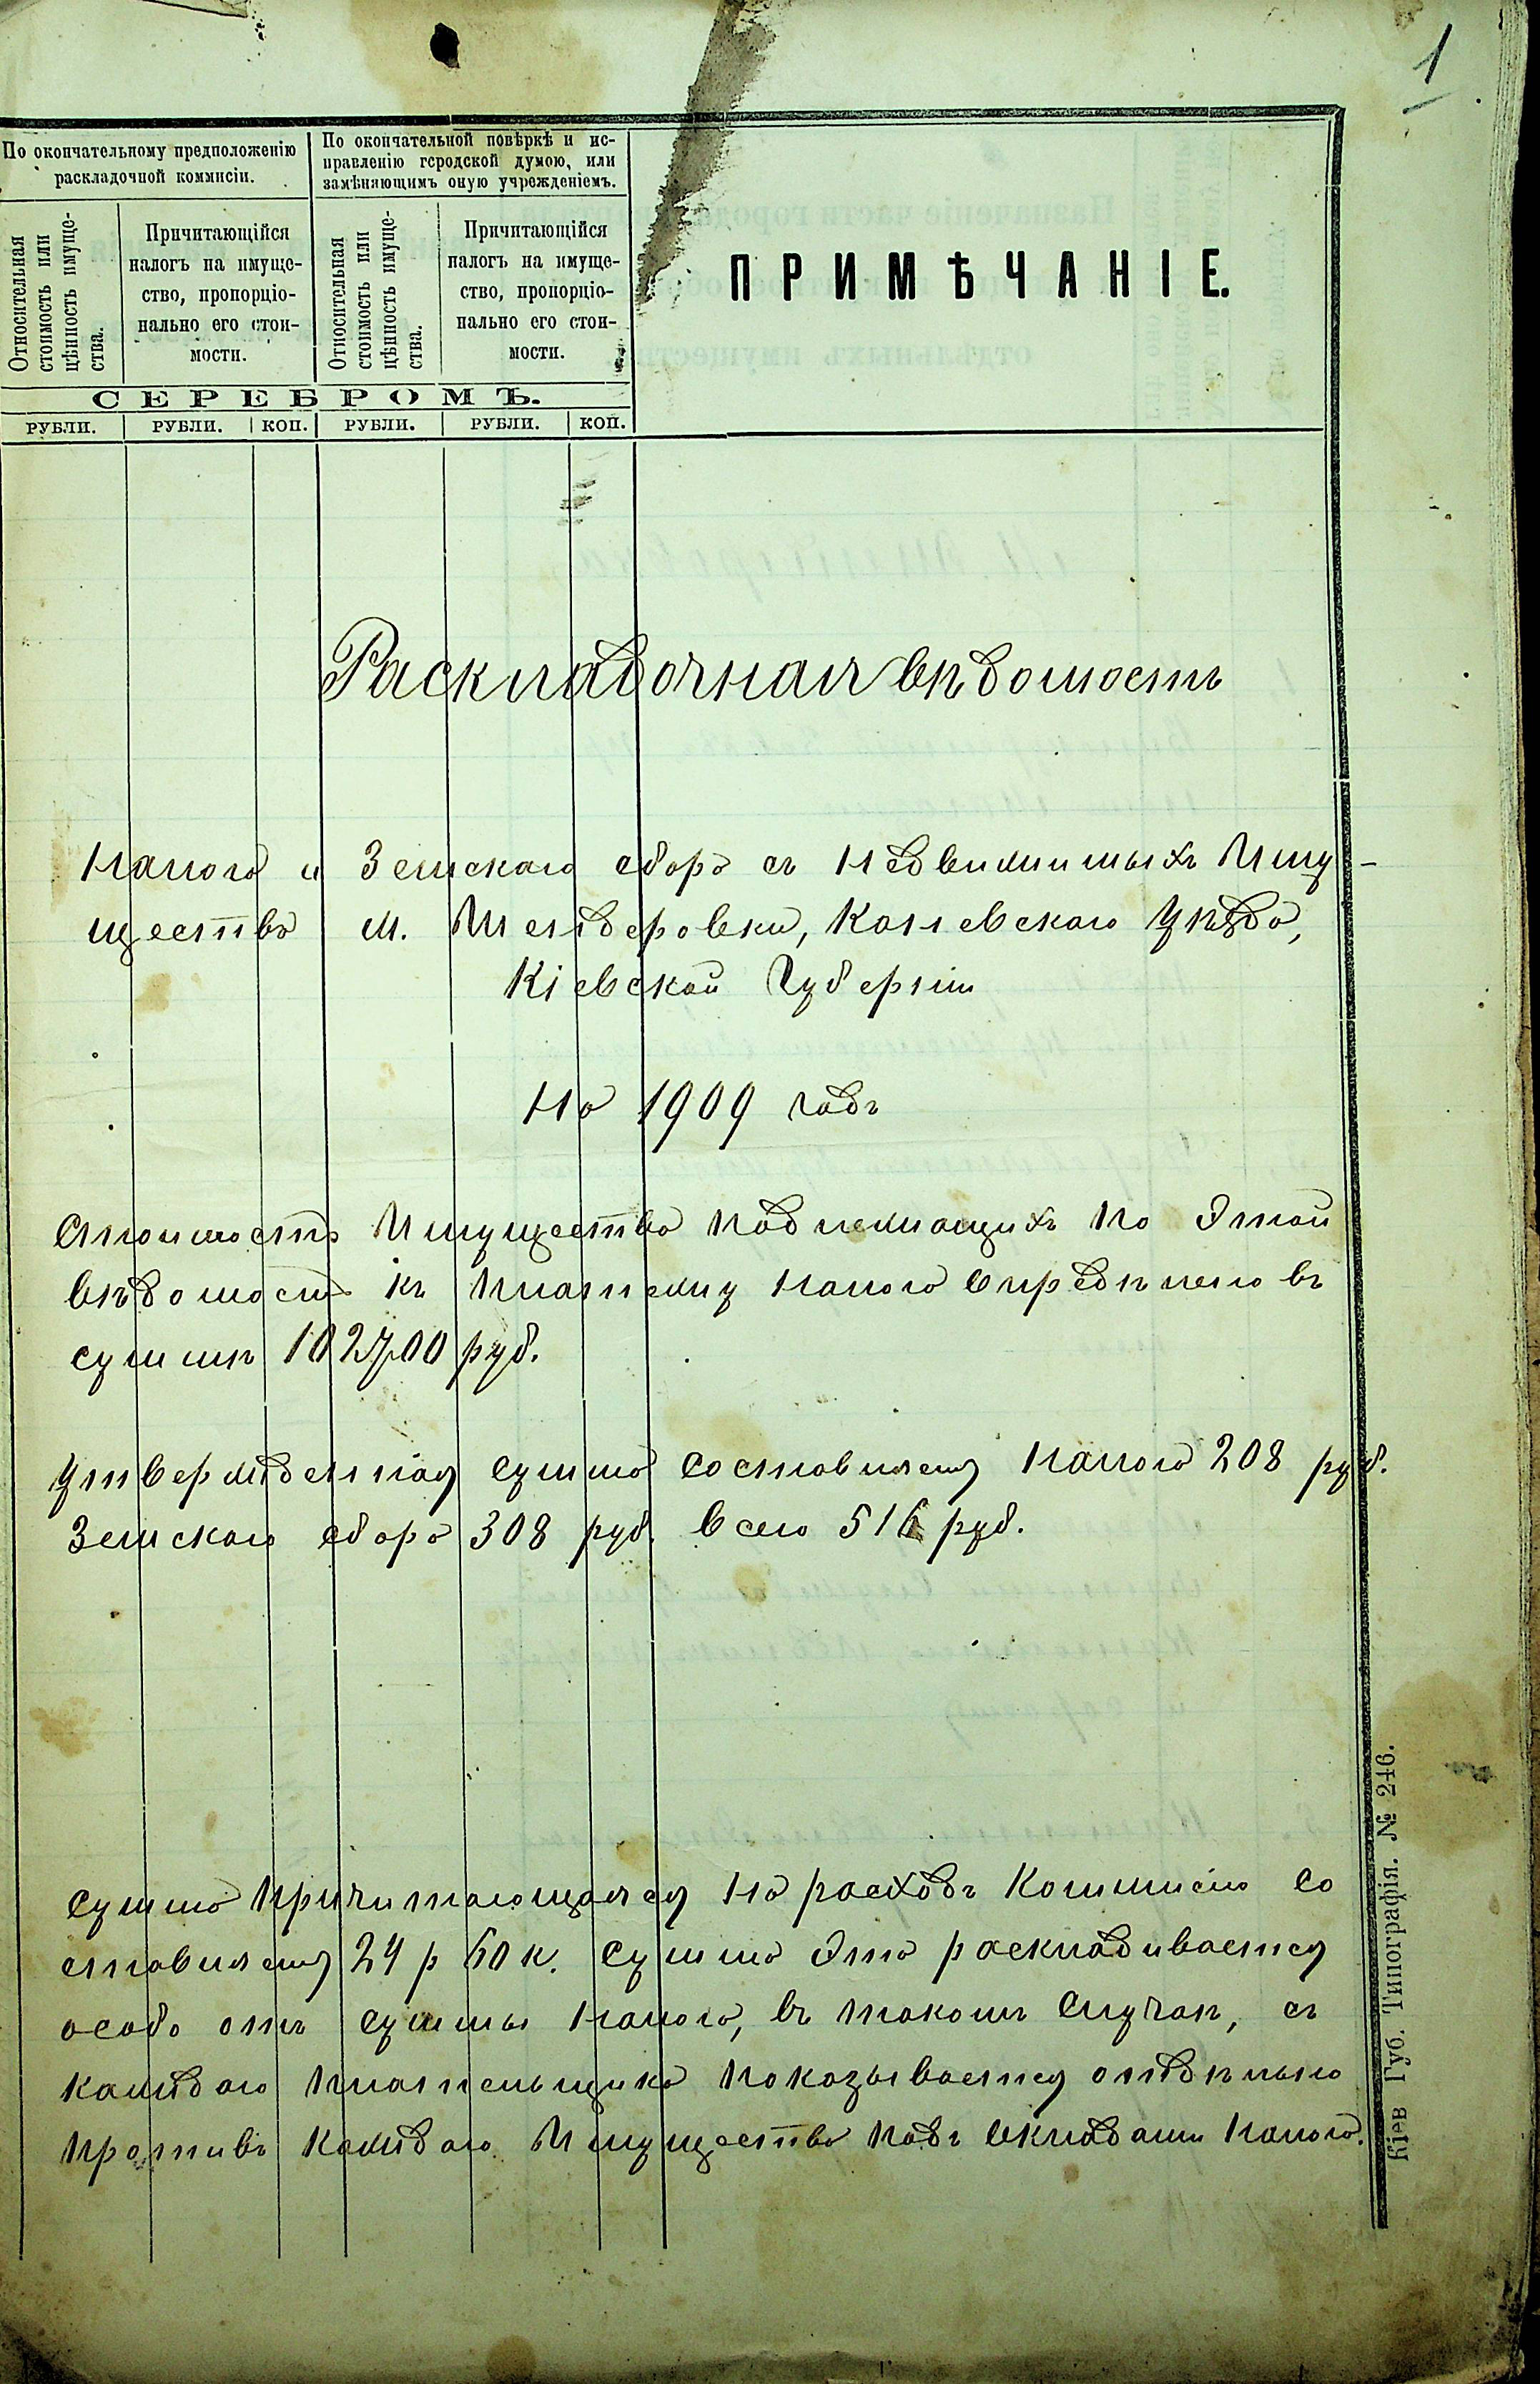 1
По окончательному предположенію
раскладочной коммисіи.
По окончательной повѣркѣ и ис-
правленію городской думою, или
замѣняющимъ оную учрежденіемъ.
Относительная
стоимость или
цѣнность имуще-
ства.
Причитающійся
налогъ на имуще-
ство, пропорціо-
нально его стои-
мости.
Относительная
стоимость или
цѣнность имуще-
ства.
Причитающійся
налогъ на имуще-
ство, пропорціо-
нально его стои-
мости.
ПРИМѢЧАНІЕ.
СЕРЕБРОМЪ.
РУБЛИ. РУБЛИ. КОП. РУБЛИ. РУБЛИ. КОП.
Раскладочная вѣдомость
Налога и Земскаго сбора съ Недвижимыхъ Иму-
щества м. Шендеровки, Каневскаго Уѣзда,
Кіевской Губерніи
На 1909 годъ
Стоимость Имущества подлежащихъ по Этой
вѣдомости къ платежу налога определено въ
суммѣ 102700 руб.
Утвержденная сумма составляетъ налога 208 руб.
Земскаго сбора 308 руб. всего 516 руб.
Сумма причитающаяся на расходъ Коммисіи со
ставляетъ 24 р 60 к. Сумма Эта раскладывается
особо отъ суммы налога, въ такомъ случаѣ, съ
каждаго плательщика показывается отдѣльно
противъ каждаго Имущества подъ окладами налога.
Кіев Губ. Типографія. № 246.